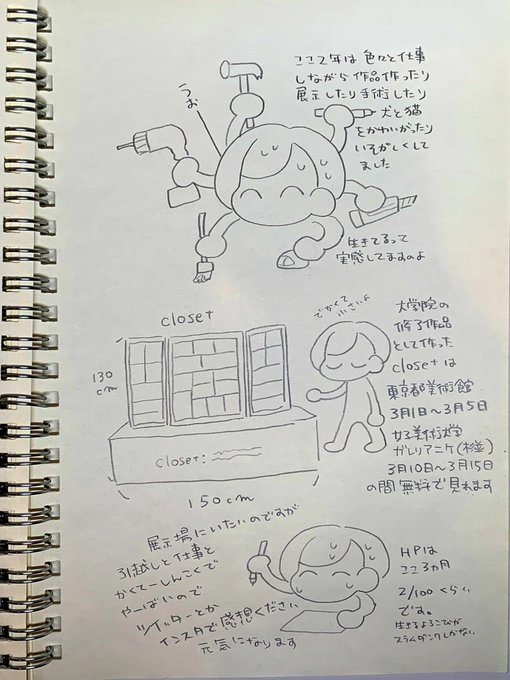 ここ2年は 色々と仕事
しながら 作品作ったり
展示したり手術したり
犬と猫
をかわいがったり
いそがしくして
ました
うお
生きてるって
実感してますのよ
closet
でかくて
130
cm
closet:
150cm
大学院の
修了作品
として作った
closetは
東京都美術館
3月1日〜3月5日
女子美術大学
ガレリアニケ(杉並)
3月10日〜3月15日
の間 無料で見れます
展示場にいたいのですが
引越しと仕事と
かくてーしんこくで
やーばいので
ツイッターとか
インスタで感想ください
元気になります
HPは
ここ3ヵ月
2/100くらい
です。
生きるよろこびが
スラムダンクしかない